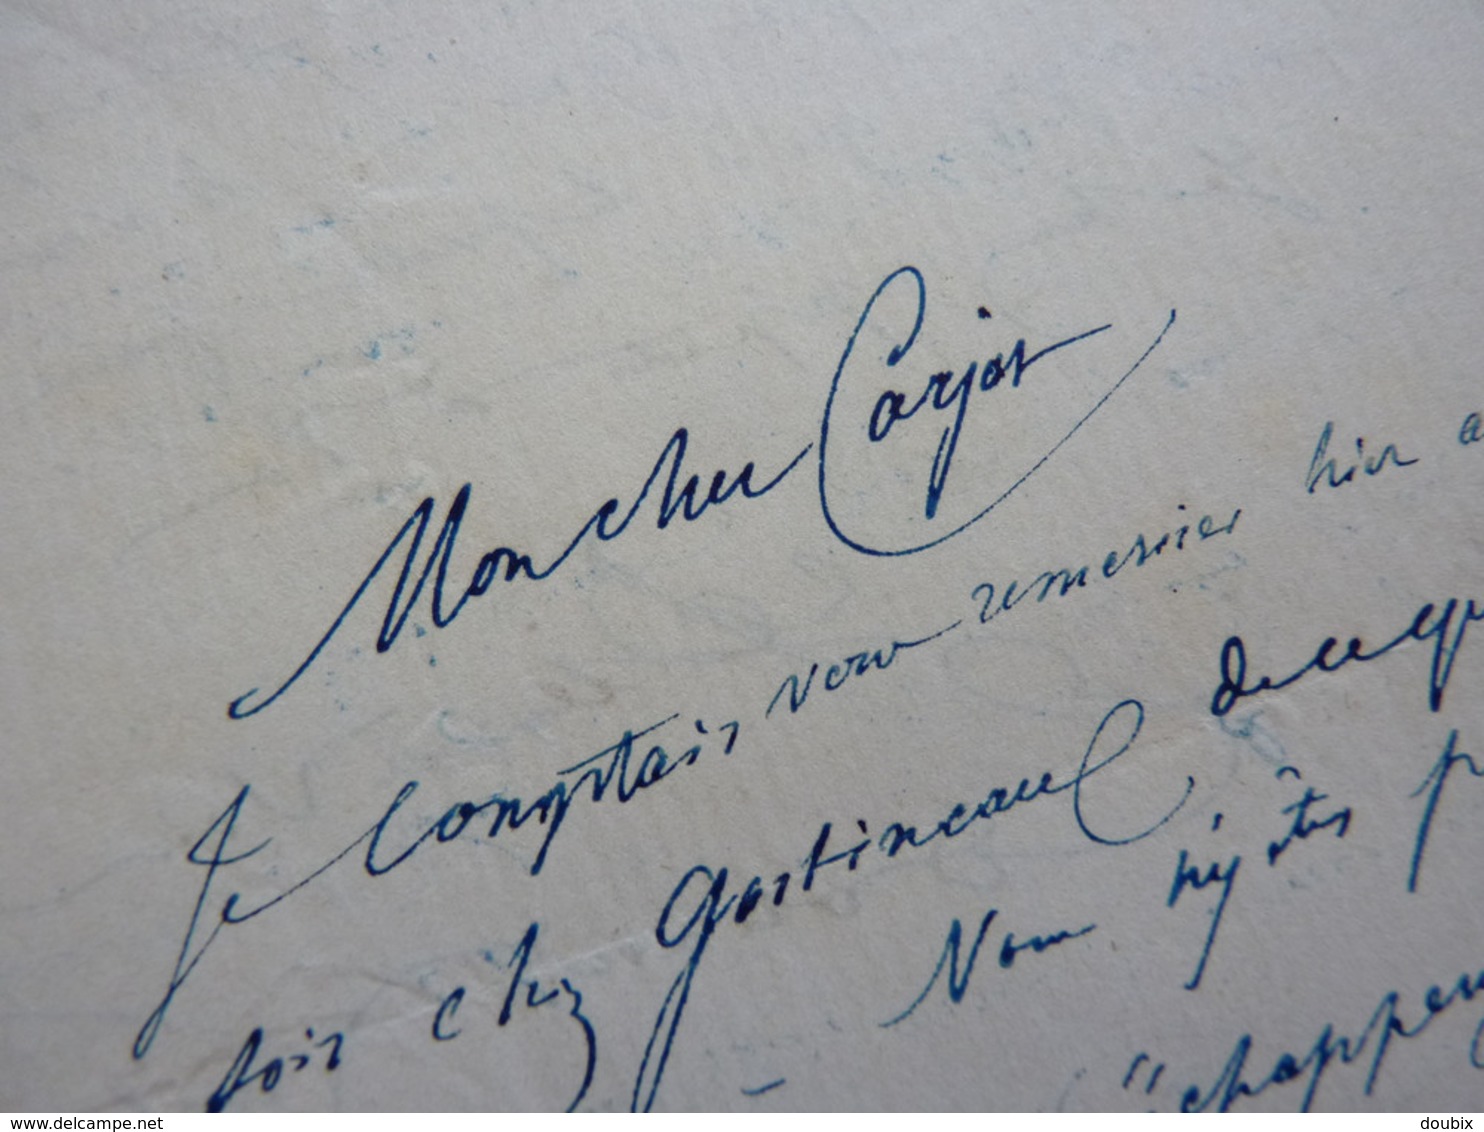 Mon cher Carjat
Je comptais vous remercier hier
soir chez Gastineau de ce
Vous n'y êtes
échappe
www.delcampe.net
doubix